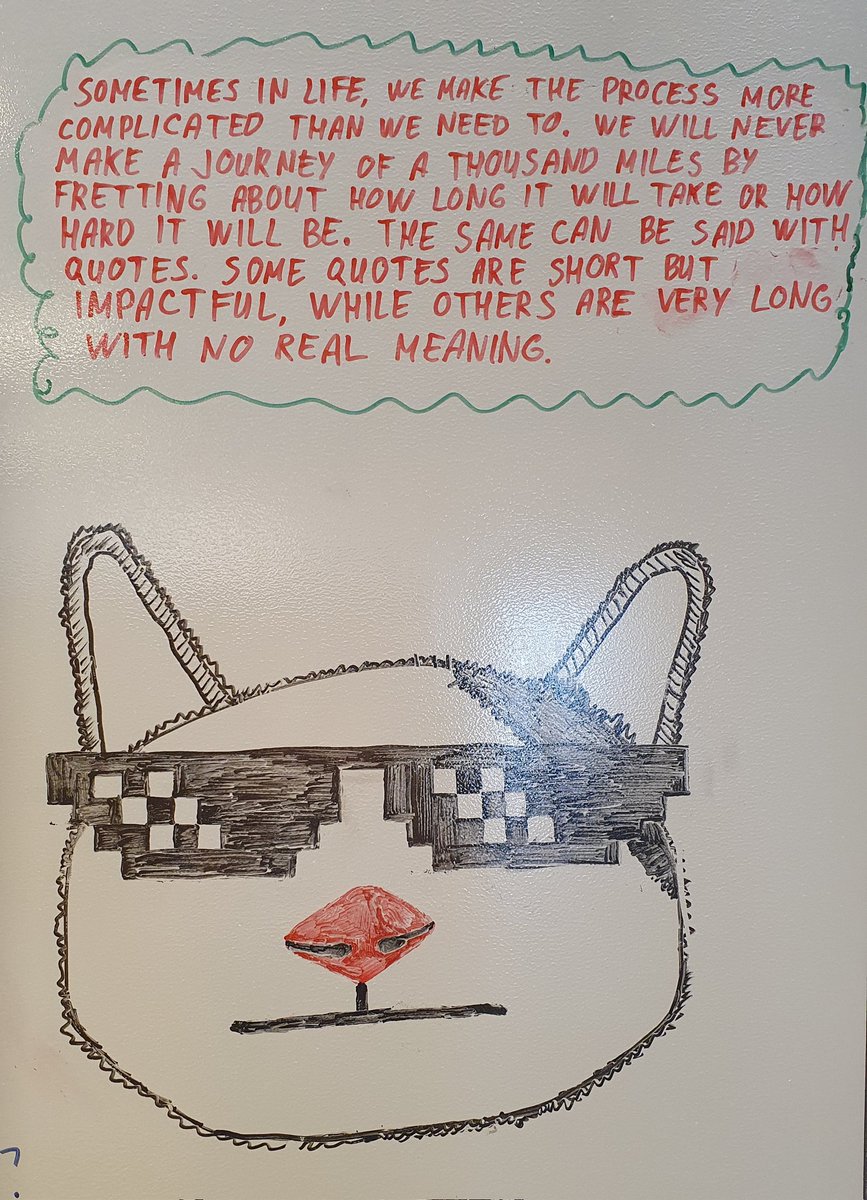 SOMETIMES IN LIFE, WE MAKE THE PROCESS MORE
COMPLICATED THAN WE NEED TO. WE WILL NEVER
MAKE A JOURNEY OF A THOUSAND MILES BY
FRETTING ABOUT HOW LONG IT WILL TAKE OR HOW
HARD IT WILL BE. THE SAME CAN BE SAID WITH
QUOTES. SOME QUOTES ARE SHORT BUT
IMPACTFUL, WHILE OTHERS ARE VERY LONG
WITH NO REAL MEANING.